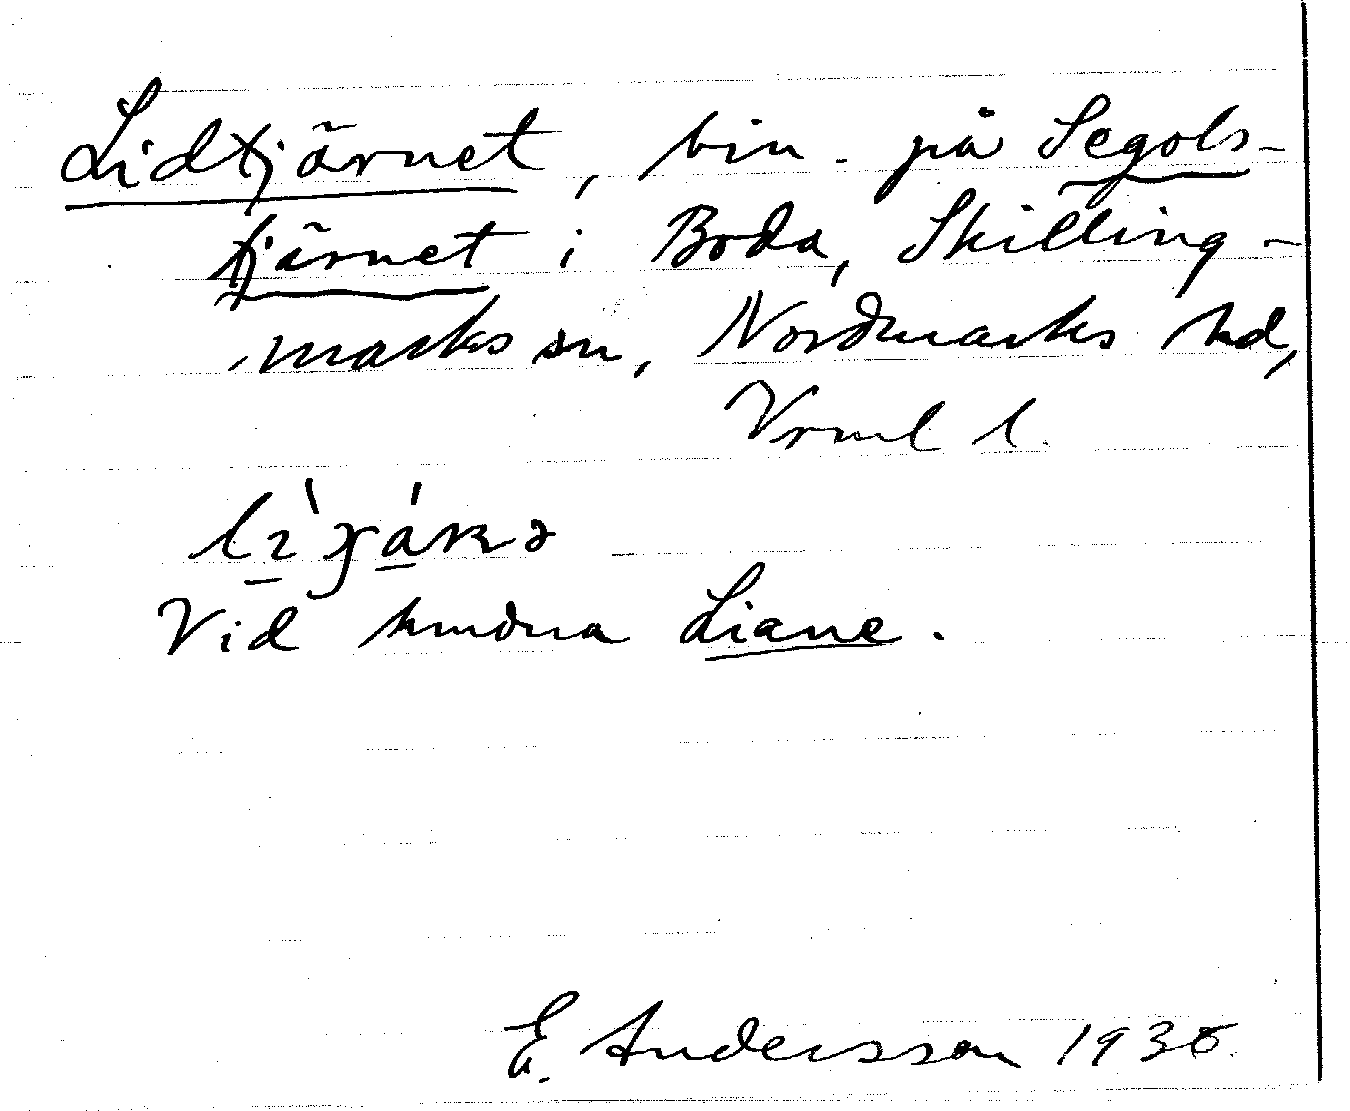 Lidtjärnet, bin. på Segols-
tjärnet i Boda, Skilling-
marks sn, Nordmarks hd,
Vrml l.
Vid Liane.
E. Andersson 193